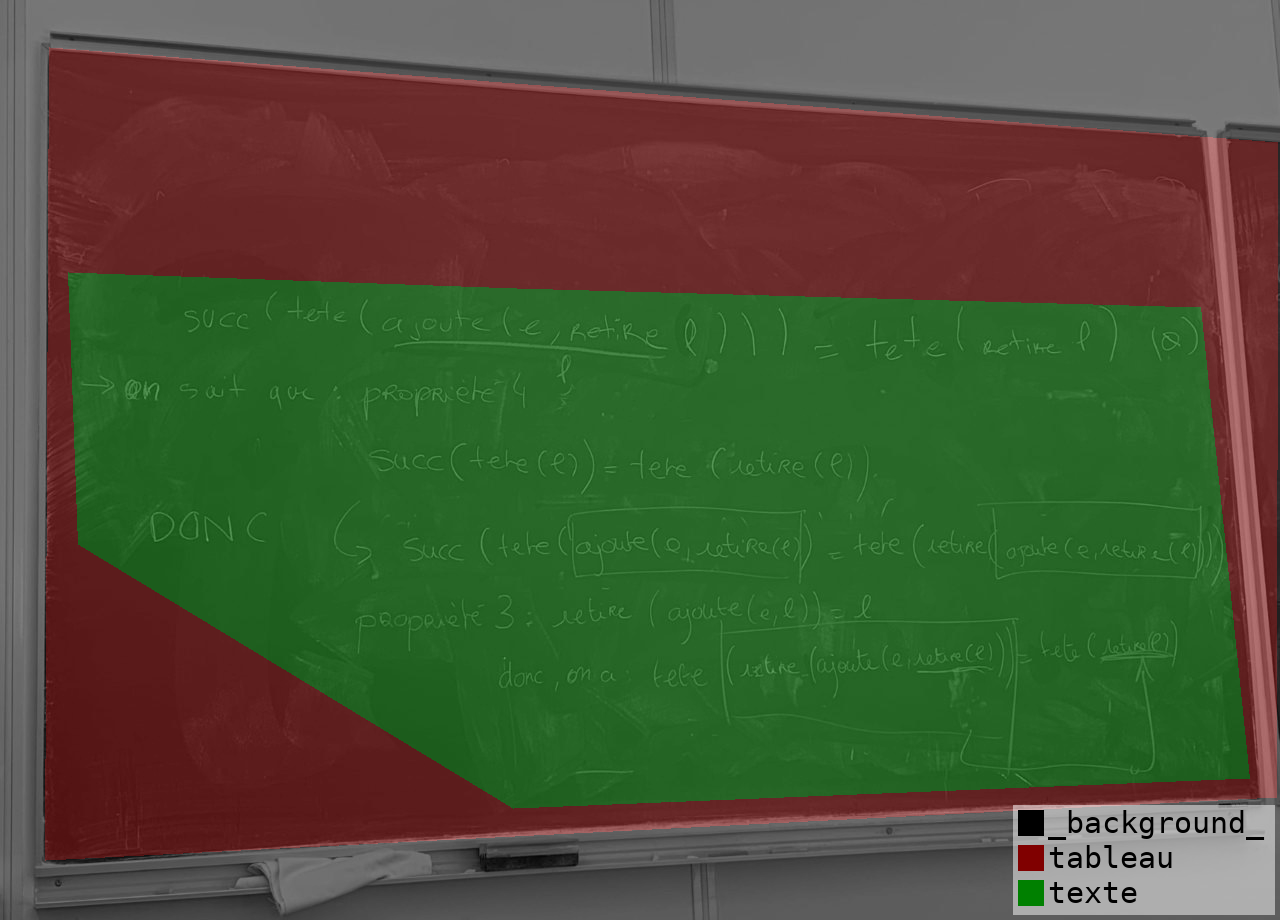 succ (tete (ajoute (e, retire l))) = tete (retire l) (⊗)
→ on sait que : propriété 4 l
succ(tete(l)) = tete (retire(l)).
DONC ↳ succ (tete (ajoute(e, retire(l))) = tete (retire(ajoute(e, retire(l))))
propriété 3 : retire (ajoute(e, l)) = l
donc, on a : tete (retire (ajoute(e, retire(l)))) = tete (retire(l))
_background_
tableau
texte